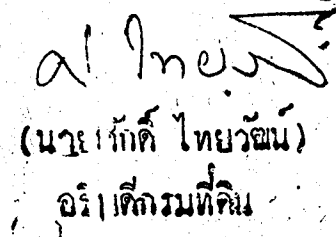 ศ. ไทยวัฒน์
(นายศักดิ์ ไทยวัฒน์)
อธิบดีกรมที่ดิน